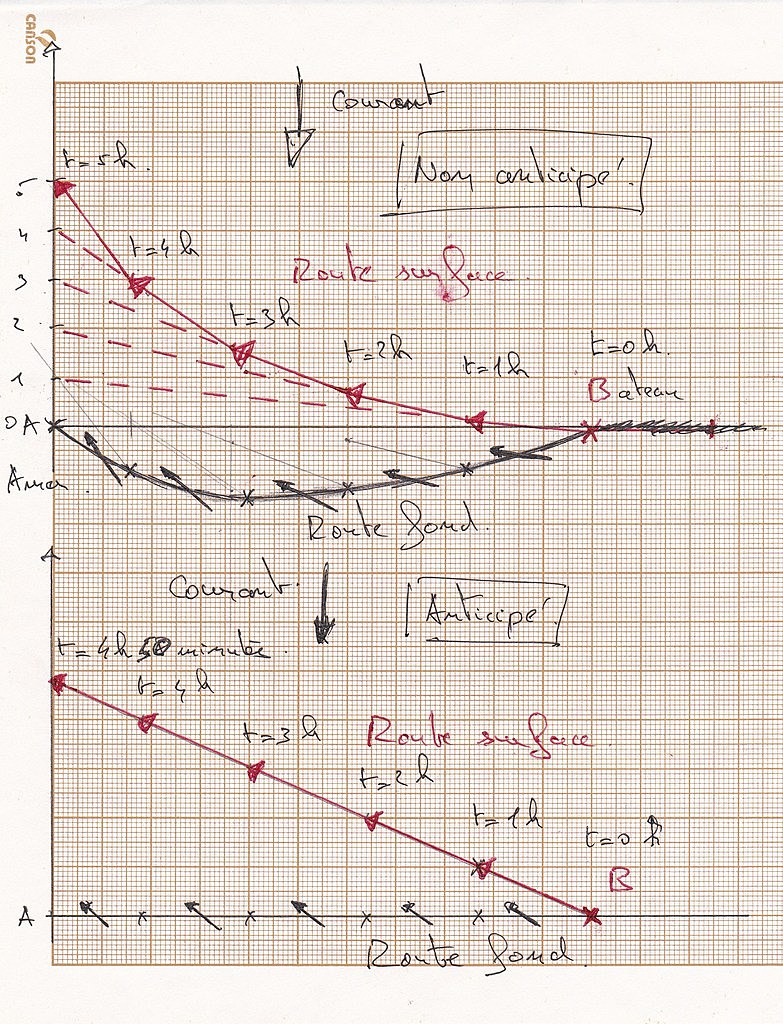 canson
Courant
Non anticipé.
t=5h.
5
4
t=4h
3
Route surface.
t=3h
2
t=2h
t=0h.
t=1h
1
Bateau
0 A
Route fond.
Courant.
Anticipé.
t=4h 50 minutes.
t=4h
t=3h
Route surface.
t=2h
t=1h
t=0h
B
A
Route fond.